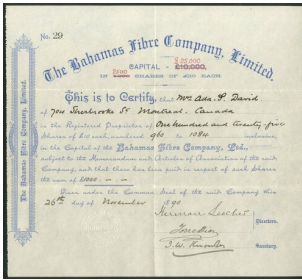 No. 29
The Bahamas Fibre Company, Limited.
£ 25,000
CAPITAL - £10,000,
2500
IN SHARES OF £10 EACH
This is to Certify, that Mrs Ada. P. David
of 704 Sherbrooke St Montreal. Canada
is the Registered Proprietor of One hundred and twenty five
Shares of £10 each, numbered 960 to 1084 inclusive,
in the Capital of the Bahamas Fibre Company, Ltd.,
subject to the Memorandum and Articles of Association of the said
Company, and that there has been paid in respect of such Shares
the sum of
Given under the Common Seal of the said Company this
26th day of November 1890
Directors.
Secretary.
The Bahamas Fibre Company, Limited.